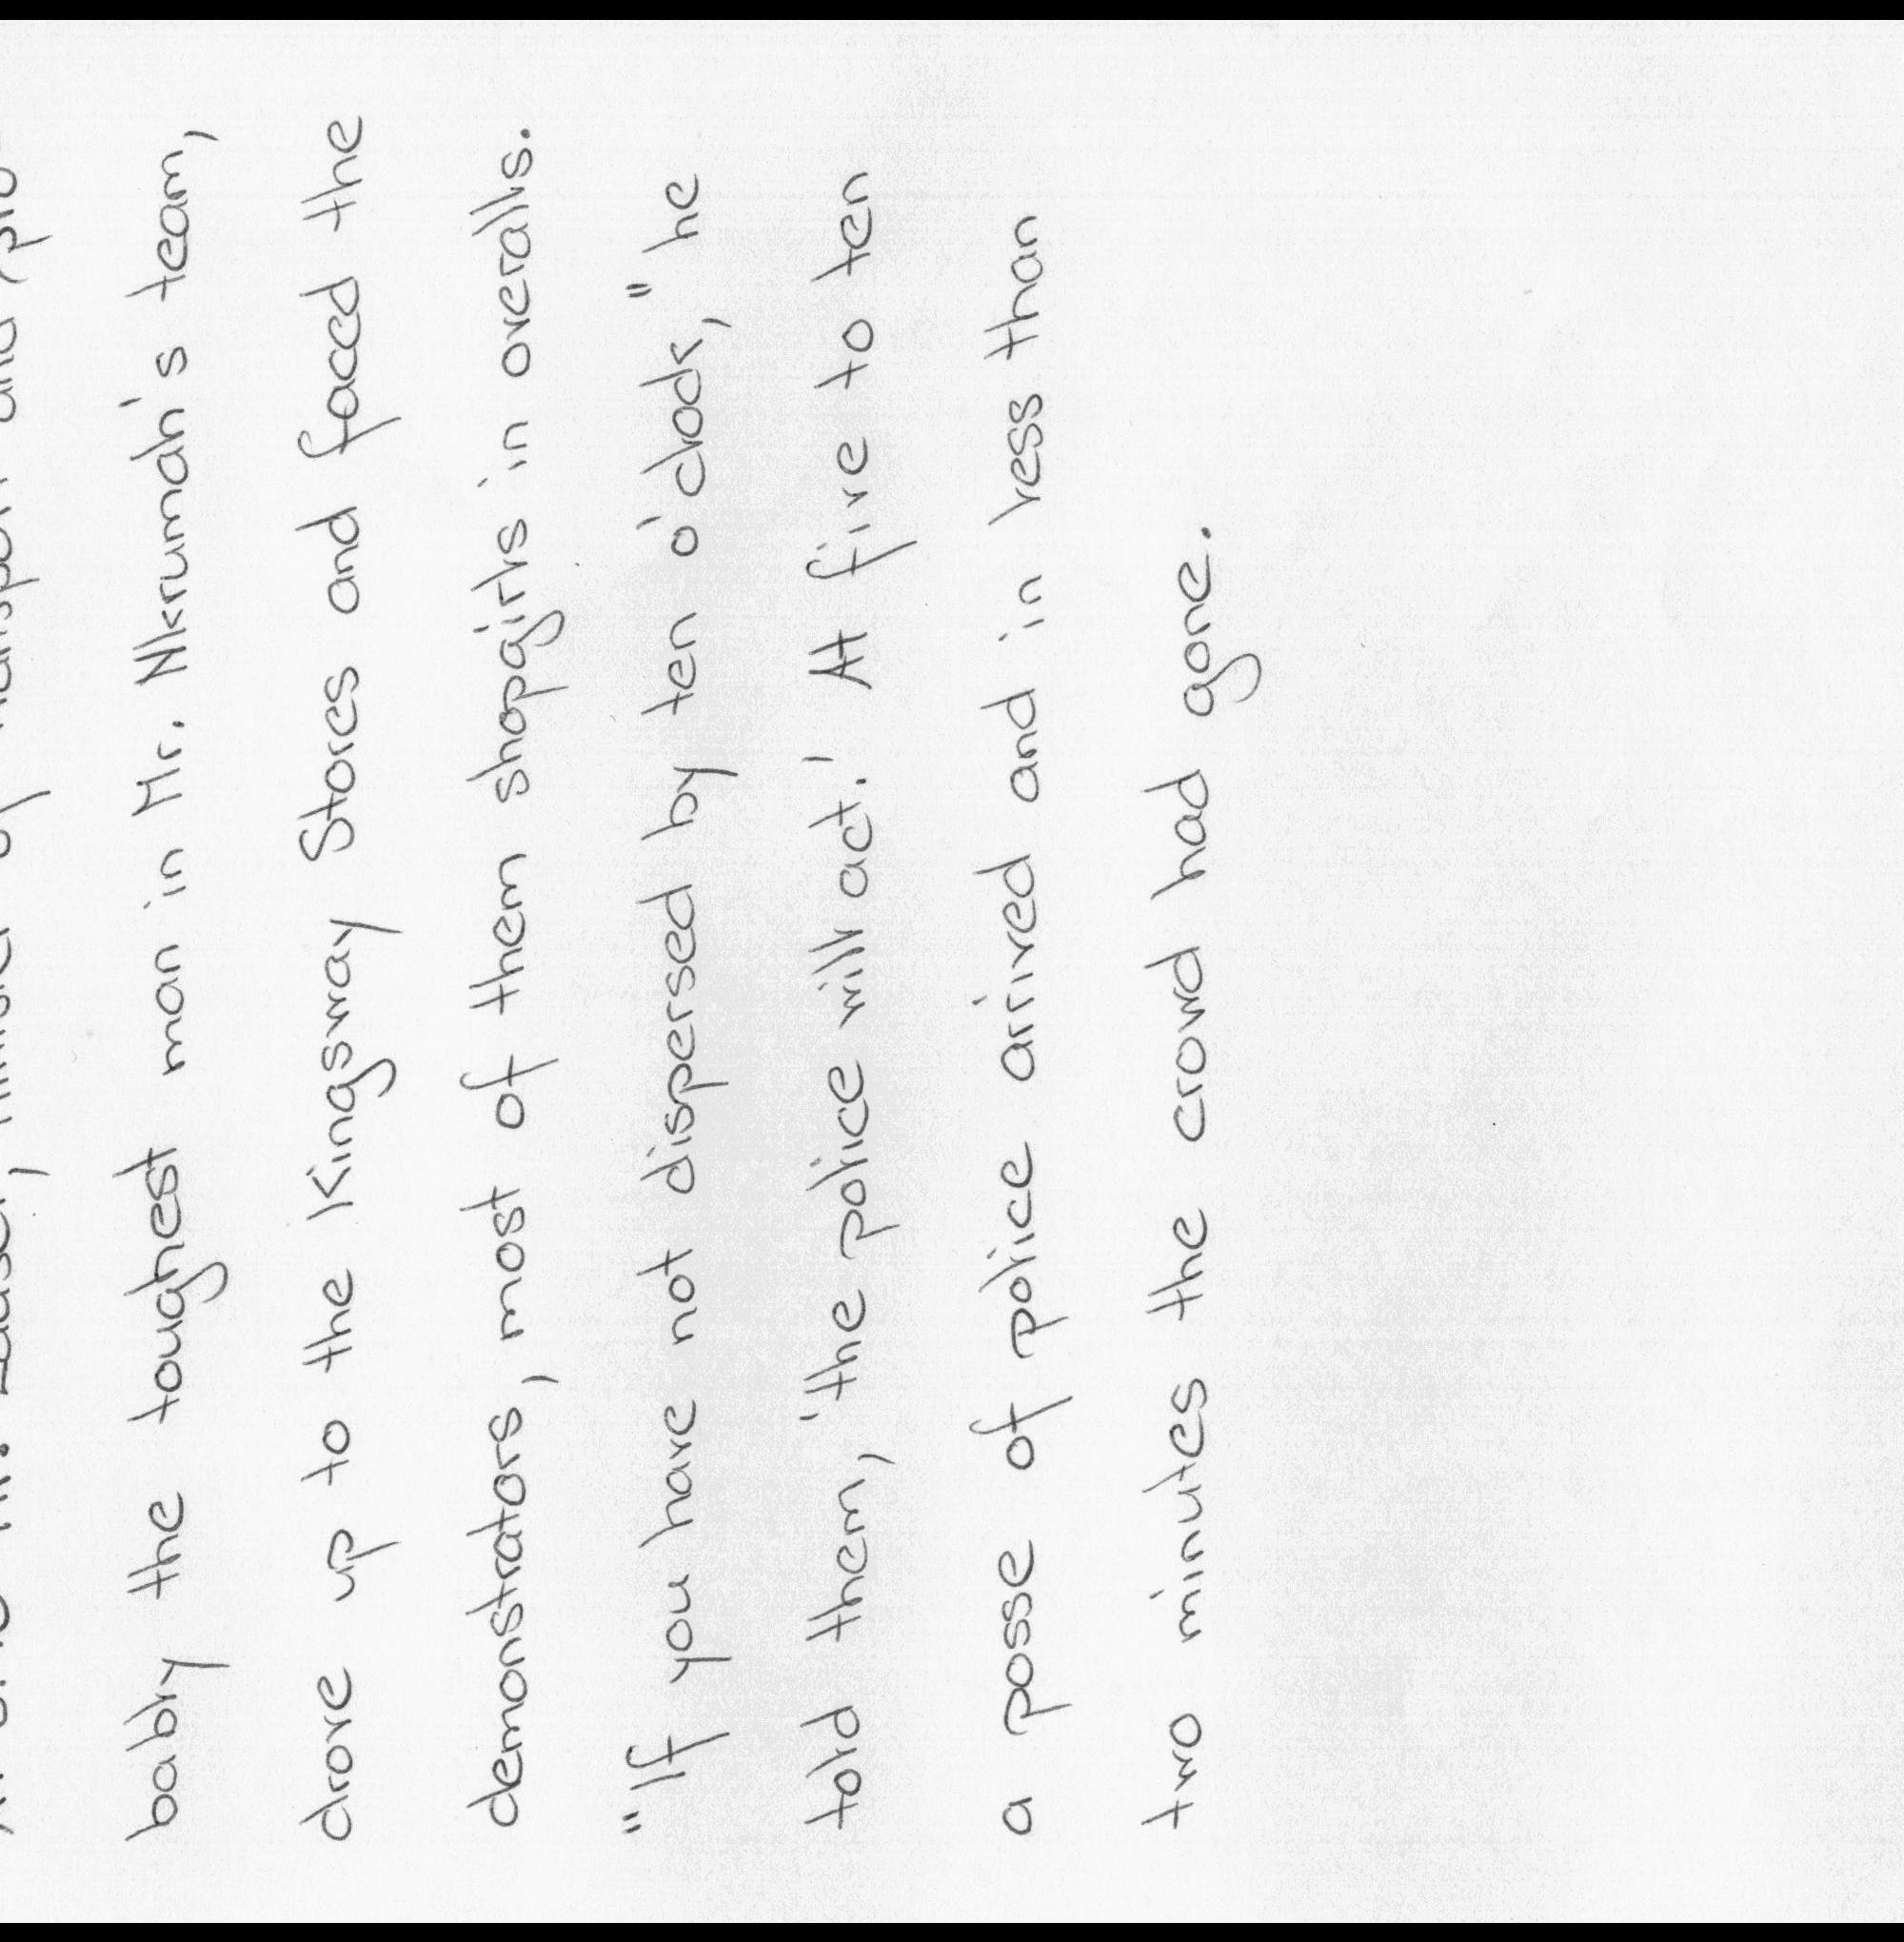 bably the toughest man in Mr. Nkrumah's team,
drove up to the Kingsway Stores and faced the
demonstrators, most of them shopgirls in overalls.
"If you have not dispersed by ten o'clock," he
told them, 'the police will act.' At five to ten
a posse of police arrived and in less than
two minutes the crowd had gone.